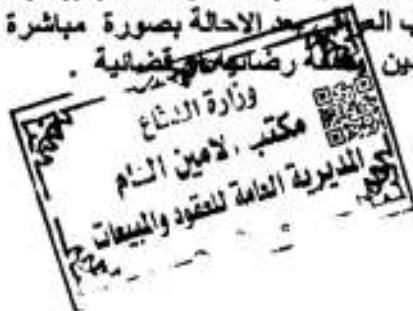 بعد الاحالة بصورة مباشرة
رضائية او قضائية .
وزارة الدفاع
مكتب . لامين العام
المديرية العامة للعقود والمبيعات